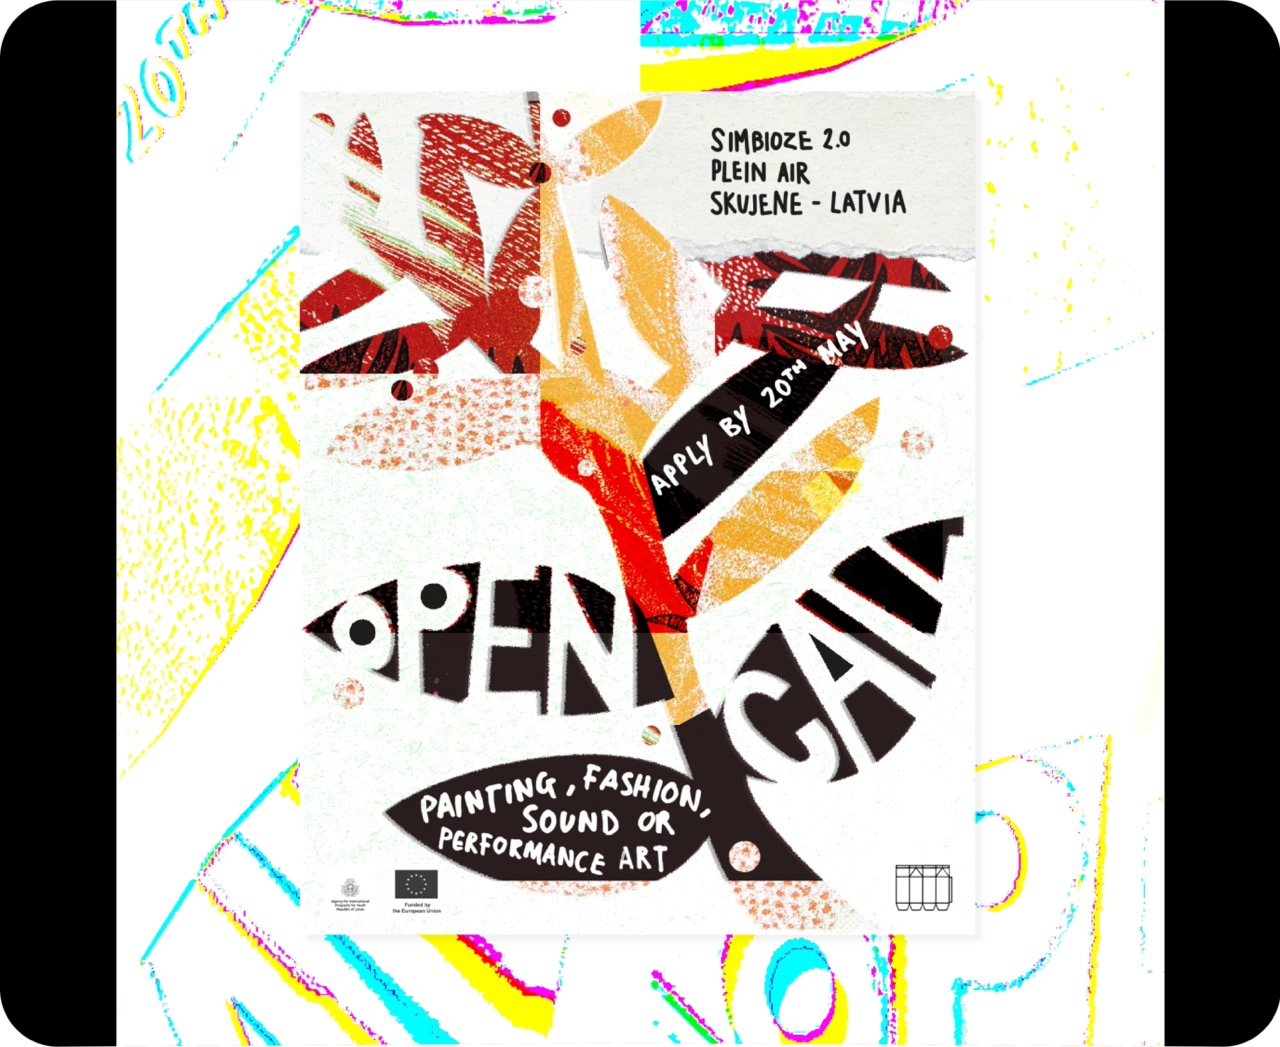 20TH
SIMBIOZE 2.0
PLEIN AIR
SKUJENE - LATVIA
APPLY BY 20TH MAY
OPEN CALL
PAINTING, FASHION,
SOUND OR
PERFORMANCE ART
Agency for International
Programs for Youth
Republic of Latvia
Funded by
the European Union
OP